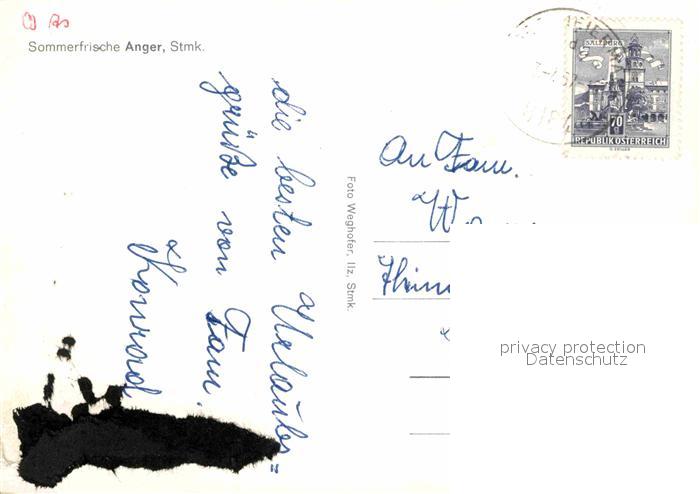 Sommerfrische Anger, Stmk.
die besten Urlaubs=
grüße von Fam.
Konrad
Foto Weghofer, Ilz, Stmk.
An Fam.
SALZBURG
70
REPUBLIK ÖSTERREICH
privacy protection
Datenschutz